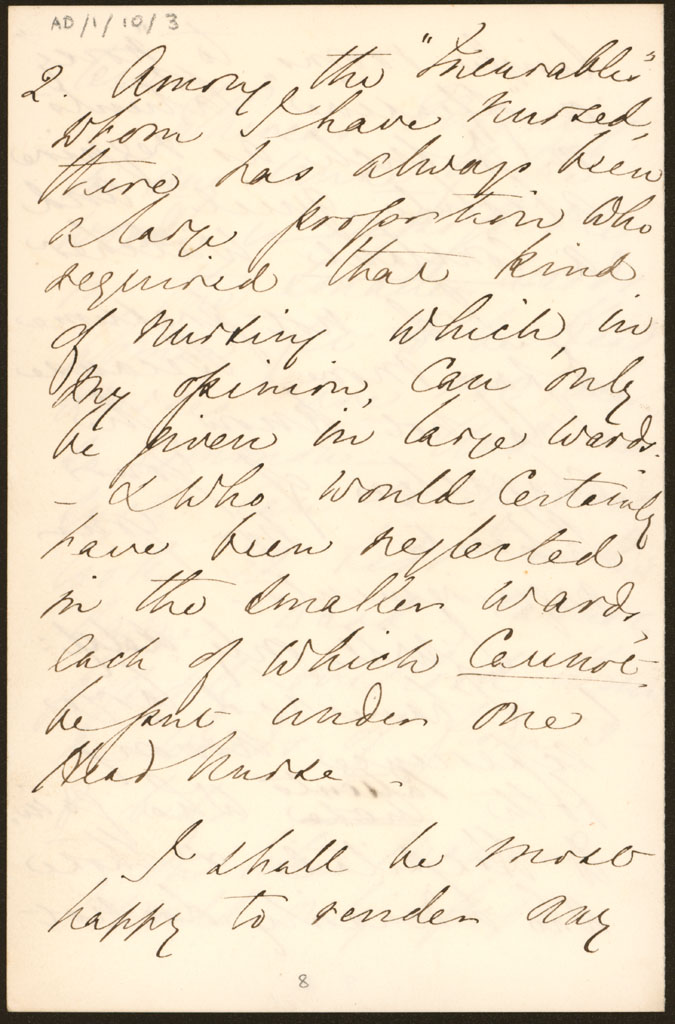 AD/1/10/3
2. Among the "Incurables"
whom I have nursed,
there has always been
a large proportion who
required that kind
of nursing which, in
my opinion, can only
be given in large wards.
- & who would certainly
have been neglected
in the smaller wards,
each of which cannot
be put under one
Head Nurse.
I shall be most
happy to render any
8